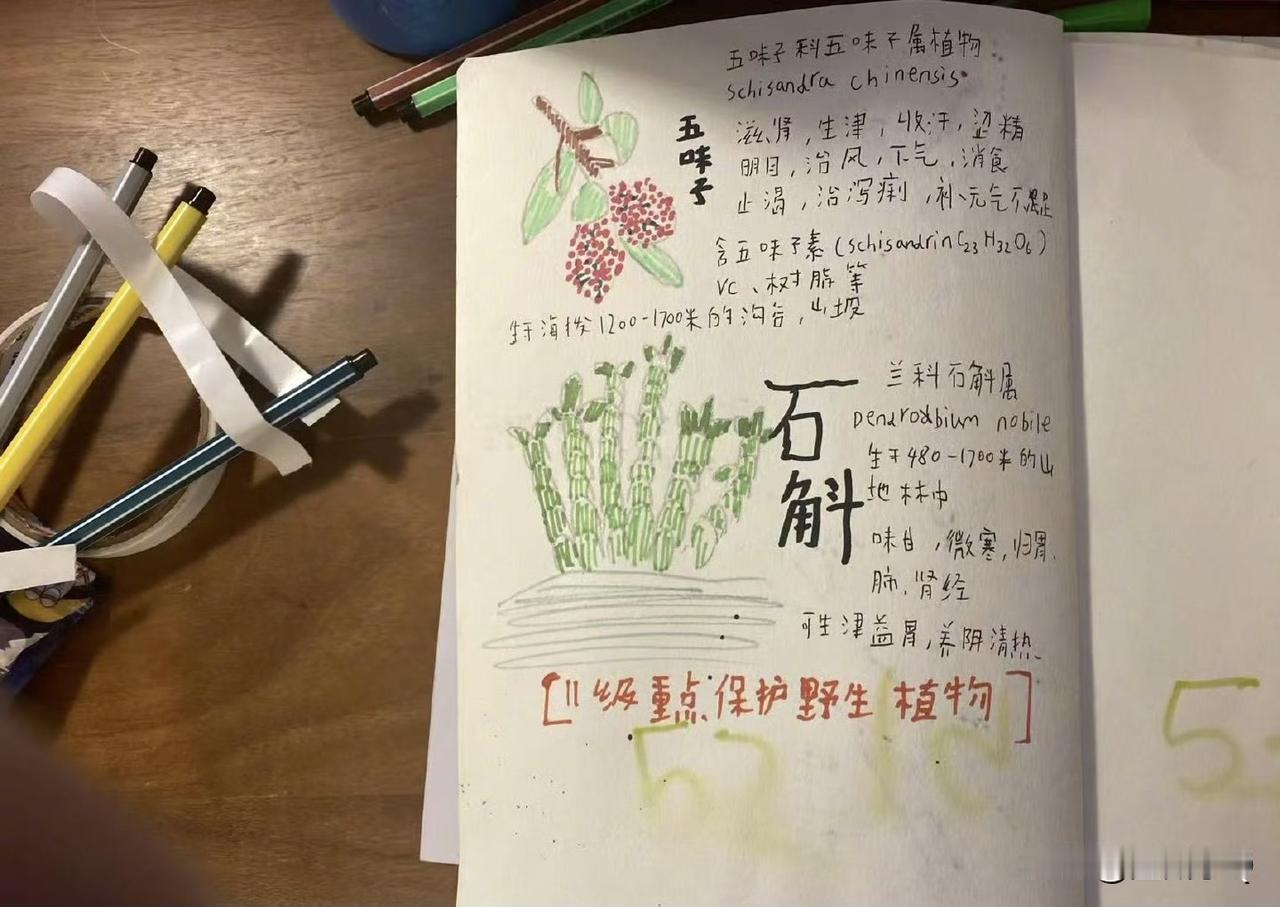 五味子科五味子属植物
schisandra chinensis
五味子
滋肾，生津，收汗，涩精
明目，治风，下气，消食
止渴，治泻痢，补元气不足
含五味子素(schisandrin C23H32O6)
VC、树脂等
生于海拔1200-1700米的沟谷，山坡
石斛
兰科石斛属
Dendrodbium nobile
生于480-1700米的山
地林中
味甘，微寒，归胃、
肺、肾经
可生津益胃，养阴清热、
[II级重点保护野生植物]
52
5